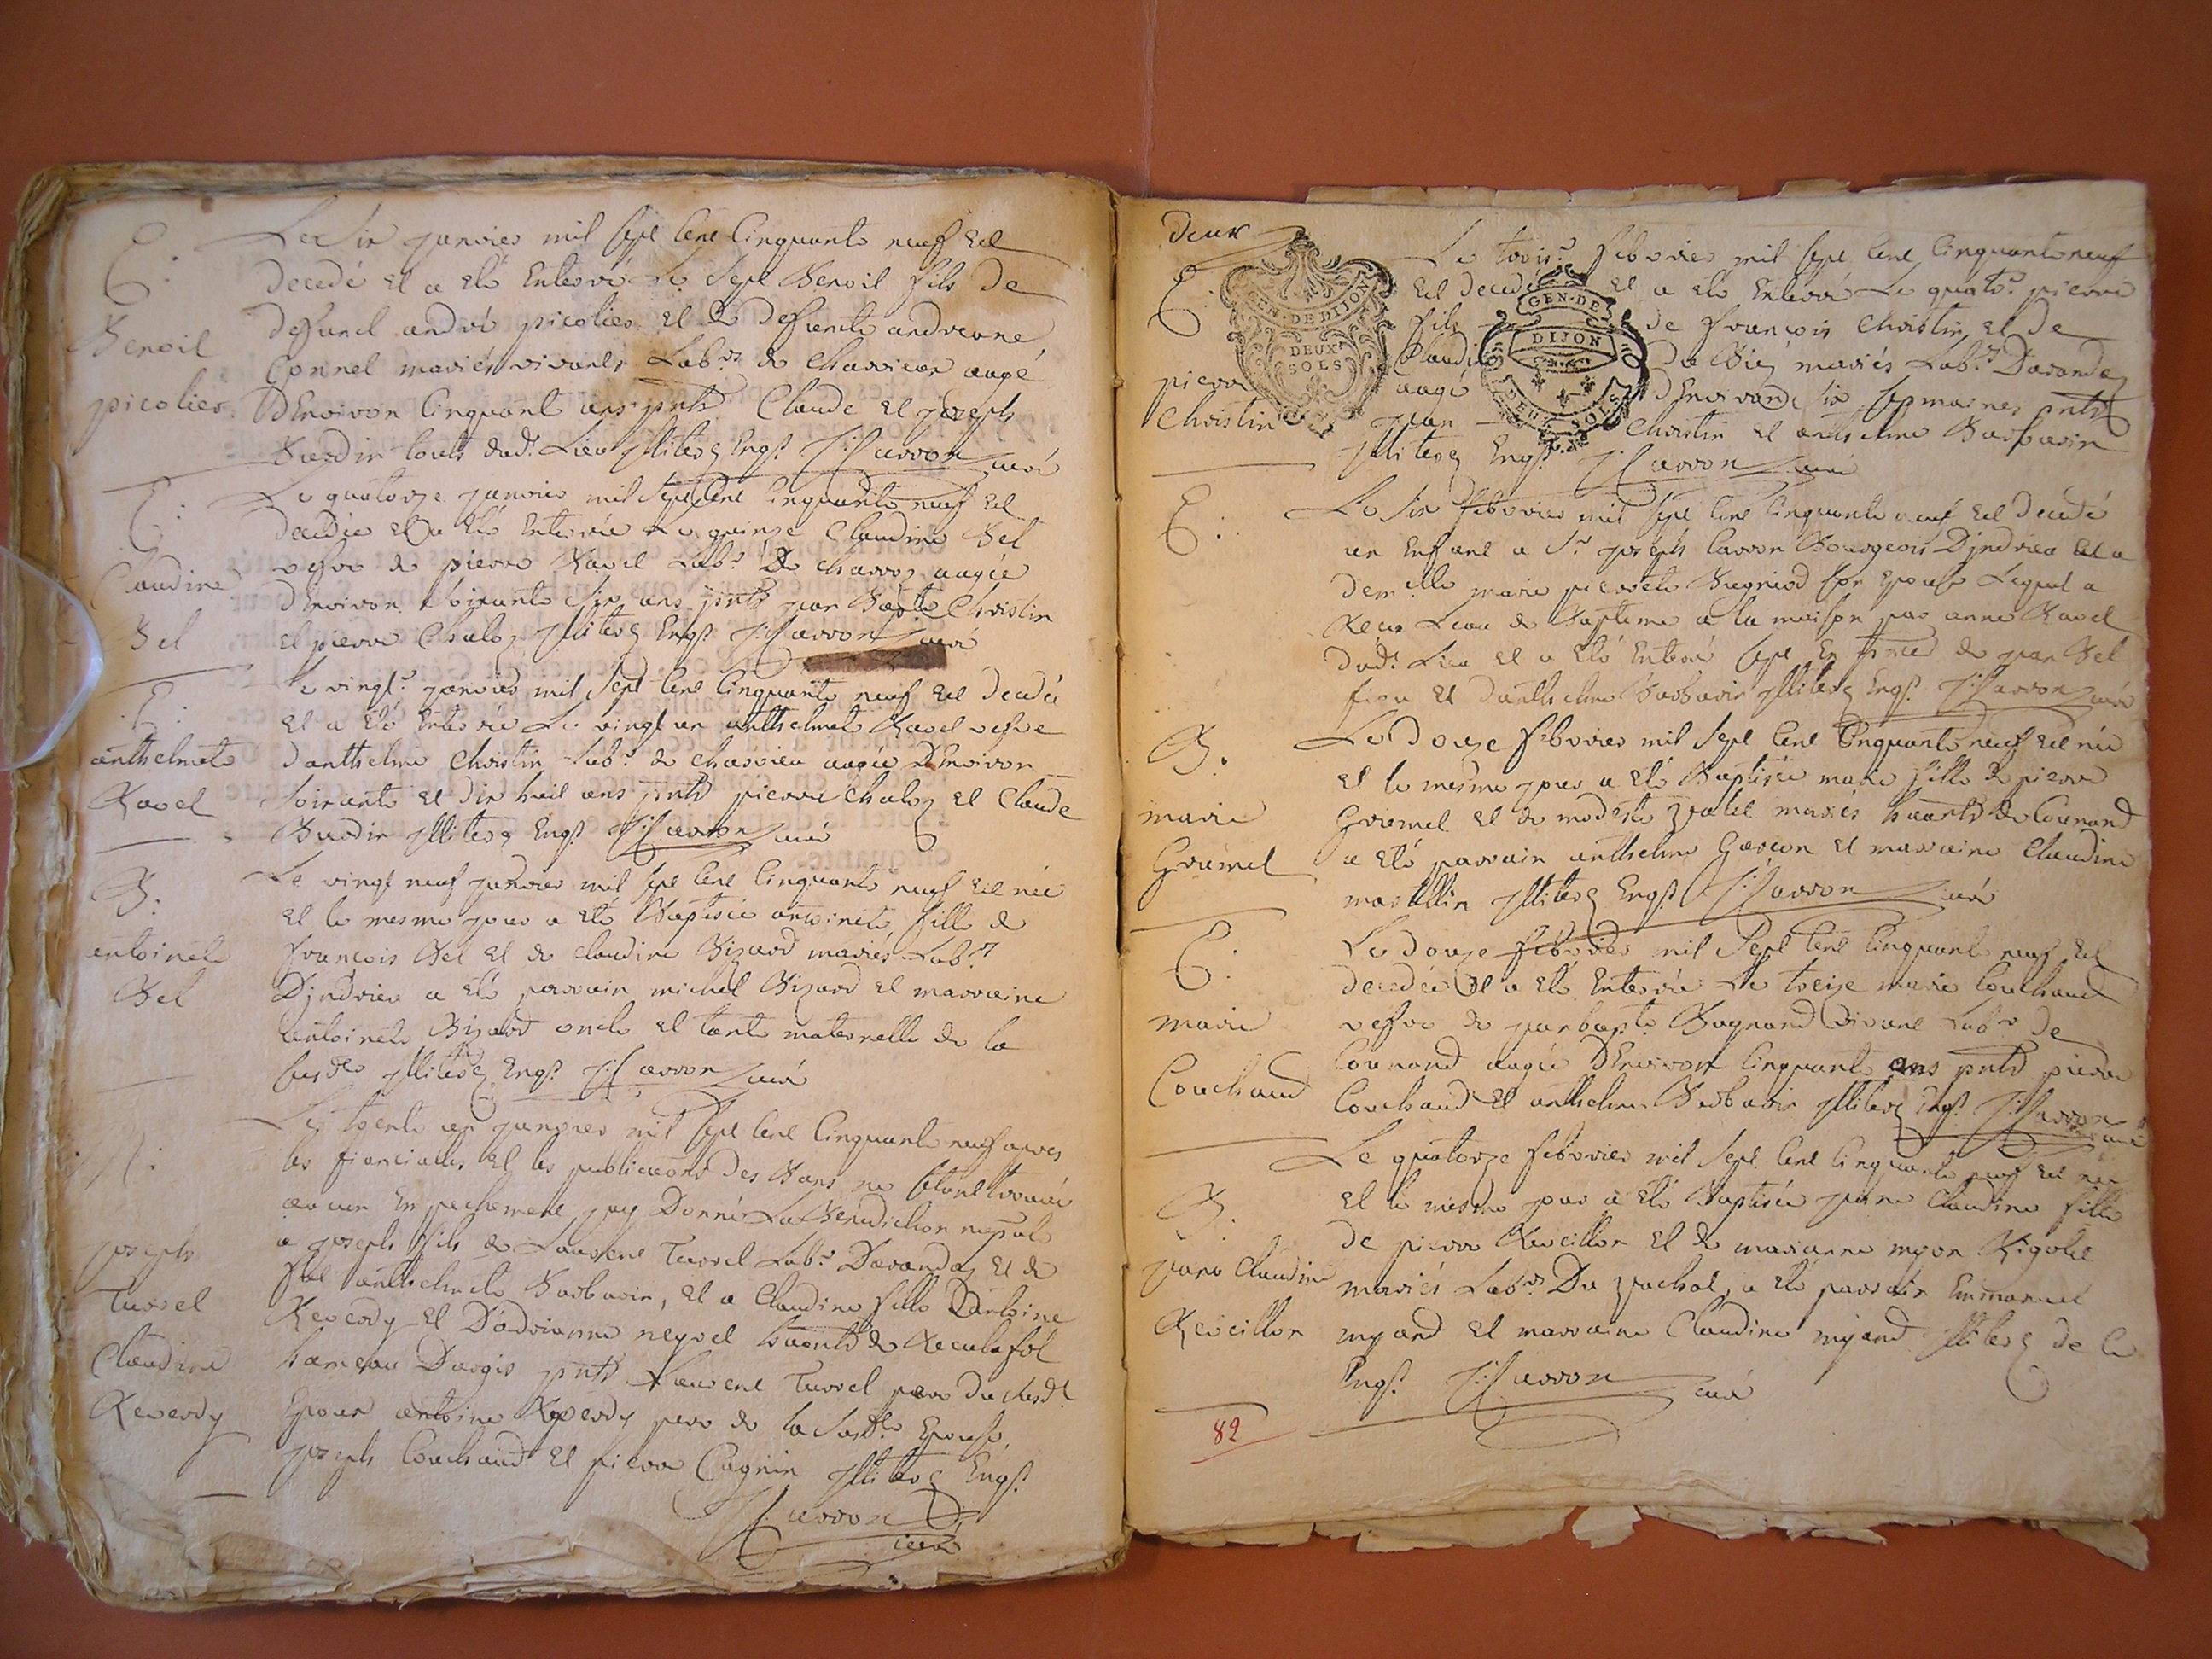 E:
Benoit
picolier
Le Six janvier mil sept cent cinquante neuf est
decedé et a eté enterré le sept Benoit fils de
defunct andré picolier et de defuncte andreane
mariés vivants Lab.rs de Charrieu augé
D'Environ cinquant ans pnts Claude et joseph
touts dud. Lieu Illiterz Enqs. Carron curé
E:
Claudine
Bel
Le quatorze janvier mil sept cent cinquante neuf est
decedée et a eté enterrée Le quinze Claudine Bel
vefve de pierre Ravel Lab.r de augée
D'Environ Soixante six ans pnts jean Bapte Christin
et pierre Chaley Illiterz Enqs. Carron curé
E:
anthelmete
Ravel
Le vingt. janvier mil sept cent cinquante neuf est decedée
et a eté enterrée Le vingt un anthelmete Ravel vefve
danthelme Christin Lab.r de Charrieu augée D'Environ
soixante et dix huit ans pnts pierre Chaley et Claude
Illiterz Enqs. Carron curé
B:
antoinete
Bel
Le vingt neuf janvier mil sept cent cinquante neuf est née
et le mesme jour a eté Baptisée antoinete fille de
francois Bel et de claudine Bizard mariés Lab.rs
Djndrieu a eté parrain michel Bizard et marraine
antoinete Bizard oncle et tante maternelle de la
susd.te Illiterz Enqs. Carron curé
M:
joseph
Turrel
Claudine
Reverdy
Le trente un janvier mil sept cent cinquante neuf apres
les fiancialles et les publications des Bans ne sétant trouvé
aucun Empechement jay Donné La Benediction nuptiale
a joseph fils de Laurent Turrel Lab.r Davandaz et de
anthelmete Barbarin, et a Claudine fille D'antoine
Reverdy et D'adrianne neyret habts de Reculafol
hameau Dargis pnts Laurent Turrel pere du susd.
Epoux antoine Reverdy pere de la susd.te Epouse,
joseph Couchaud et pierre Cagnin Illiterz Enqs.
Carron
curé
Deux
GEN. DE DIJON
DEUX
SOLS
GEN. DE
DIJON
DEUX SOLS
E:
pierre
Christin
Le trois.e febvrier mil sept cent cinquante neuf
est decedé et a eté enterré Le quatr.e pierre
fils de francois Christin et de
Claudine Du mariés Lab.rs Davandaz
augé D'Environ six semaines pnts
jean Christin et anthelme Barbarin
Illiterz Enqs. Carron curé
E:
Le Six febvrier mil sept cent cinquante neuf est decedé
un Enfant a S.r joseph Carron Bourgeois Djndrieu et a
dem.lle marie pierrete son epouse Lequel a
Receu Leau de Bapteme a la maison par anne Ravel
dud. Lieu et a eté enterré Sept En de jean Bel
et danthelme Barbarin Illiterz Enqs. Carron curé
B.
marie
Grumel
Le Douze febvrier mil sept cent cinquante neuf est née
et le mesme jour a eté Baptisée marie fille de pierre
Grumel et de modeste mariés habants de Counand
a eté parrain anthelme et marraine Claudine
martellin Illiterz Enqs. Carron curé
E:
marie
Couchaud
Le douze febvrier mil sept cent cinquante neuf est
decedée et a eté enterrée Le treize marie Couchaud
vefve de jeanbapte vivant Lab.r de
Counand augée D'Environ cinquante ans pnts pierre
Couchaud et anthelme Barbarin Illiterz Enqs. Carron
curé
B.
jane Claudine
Reveillon
Le quatorze febvrier mil sept cent cinquante neuf est née
et le mesme jour a eté Baptisée jane Claudine fille
de pierre Reveillon et de marianne
mariés Lab.rs Du a eté parrain Emmanuel
myand et marraine Claudine myand Illiterz de ce
Enqs. Carron curé
82